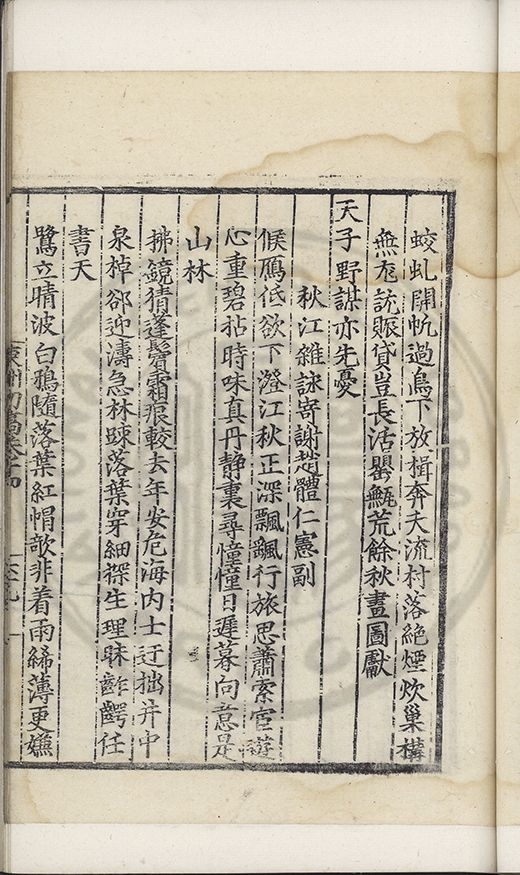 蛟虬開帆過鳥下放楫奔天流村落絕煙炊巢構
無尨詵賑貸豈長活甖甒荒餘秋畫圖獻
天子野謀亦先憂
秋江雜詠寄謝趙體仁憲副
候鴈低欲下澄江秋正深飄飄行旅思蕭索宦遊
心重碧拈時味真丹靜裏尋憧憧日遲暮向意是
山林
拂鏡猜蓬鬢霜痕較去年安危海內士迂拙弁中
泉棹郤迎濤急林踈落葉穿細探生理昧齚齶任
書天
鷺立晴波白鴉隨落葉紅帽欹非着雨絺薄更嫌